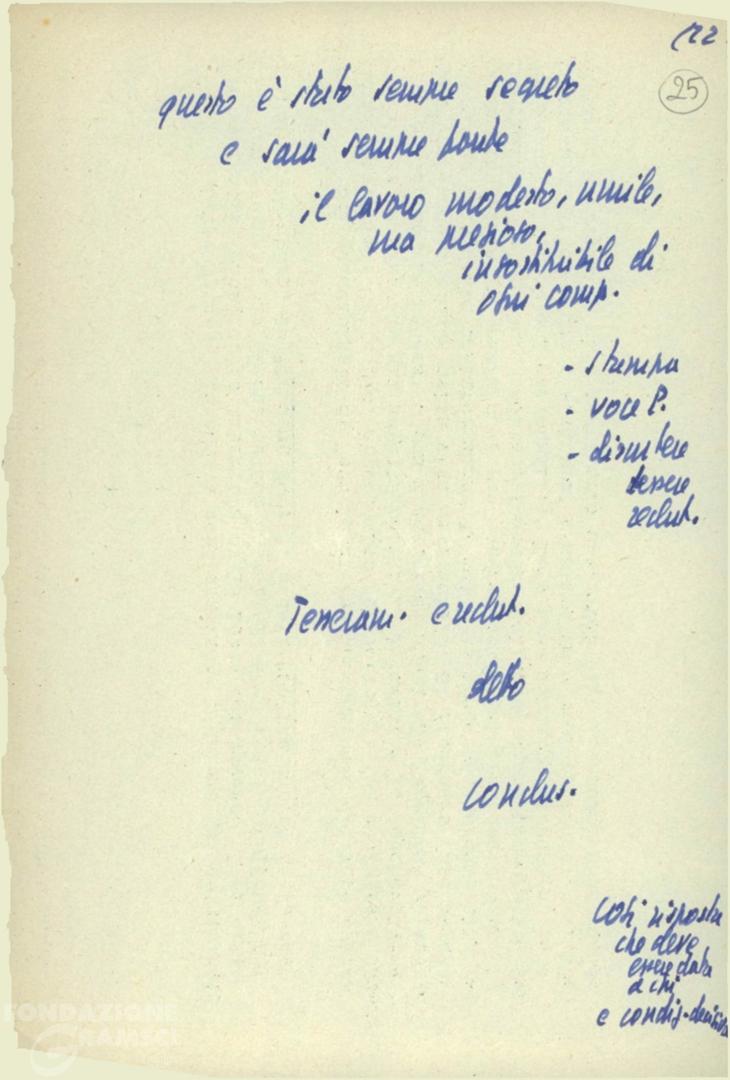 (22
25
questo è stato sempre segreto
e sarà sempre fonte
il lavoro modesto, umile,
ma prezioso,
insostituibile di
ogni comp.
- stampa
- voce P.
- discutere
tessere
reclut.
Tesseram. e reclut.
detto
Conclus.
Così risposta
che deve
essere data
a chi
e condiz. decisiva
FONDAZIONE
GRAMSCI